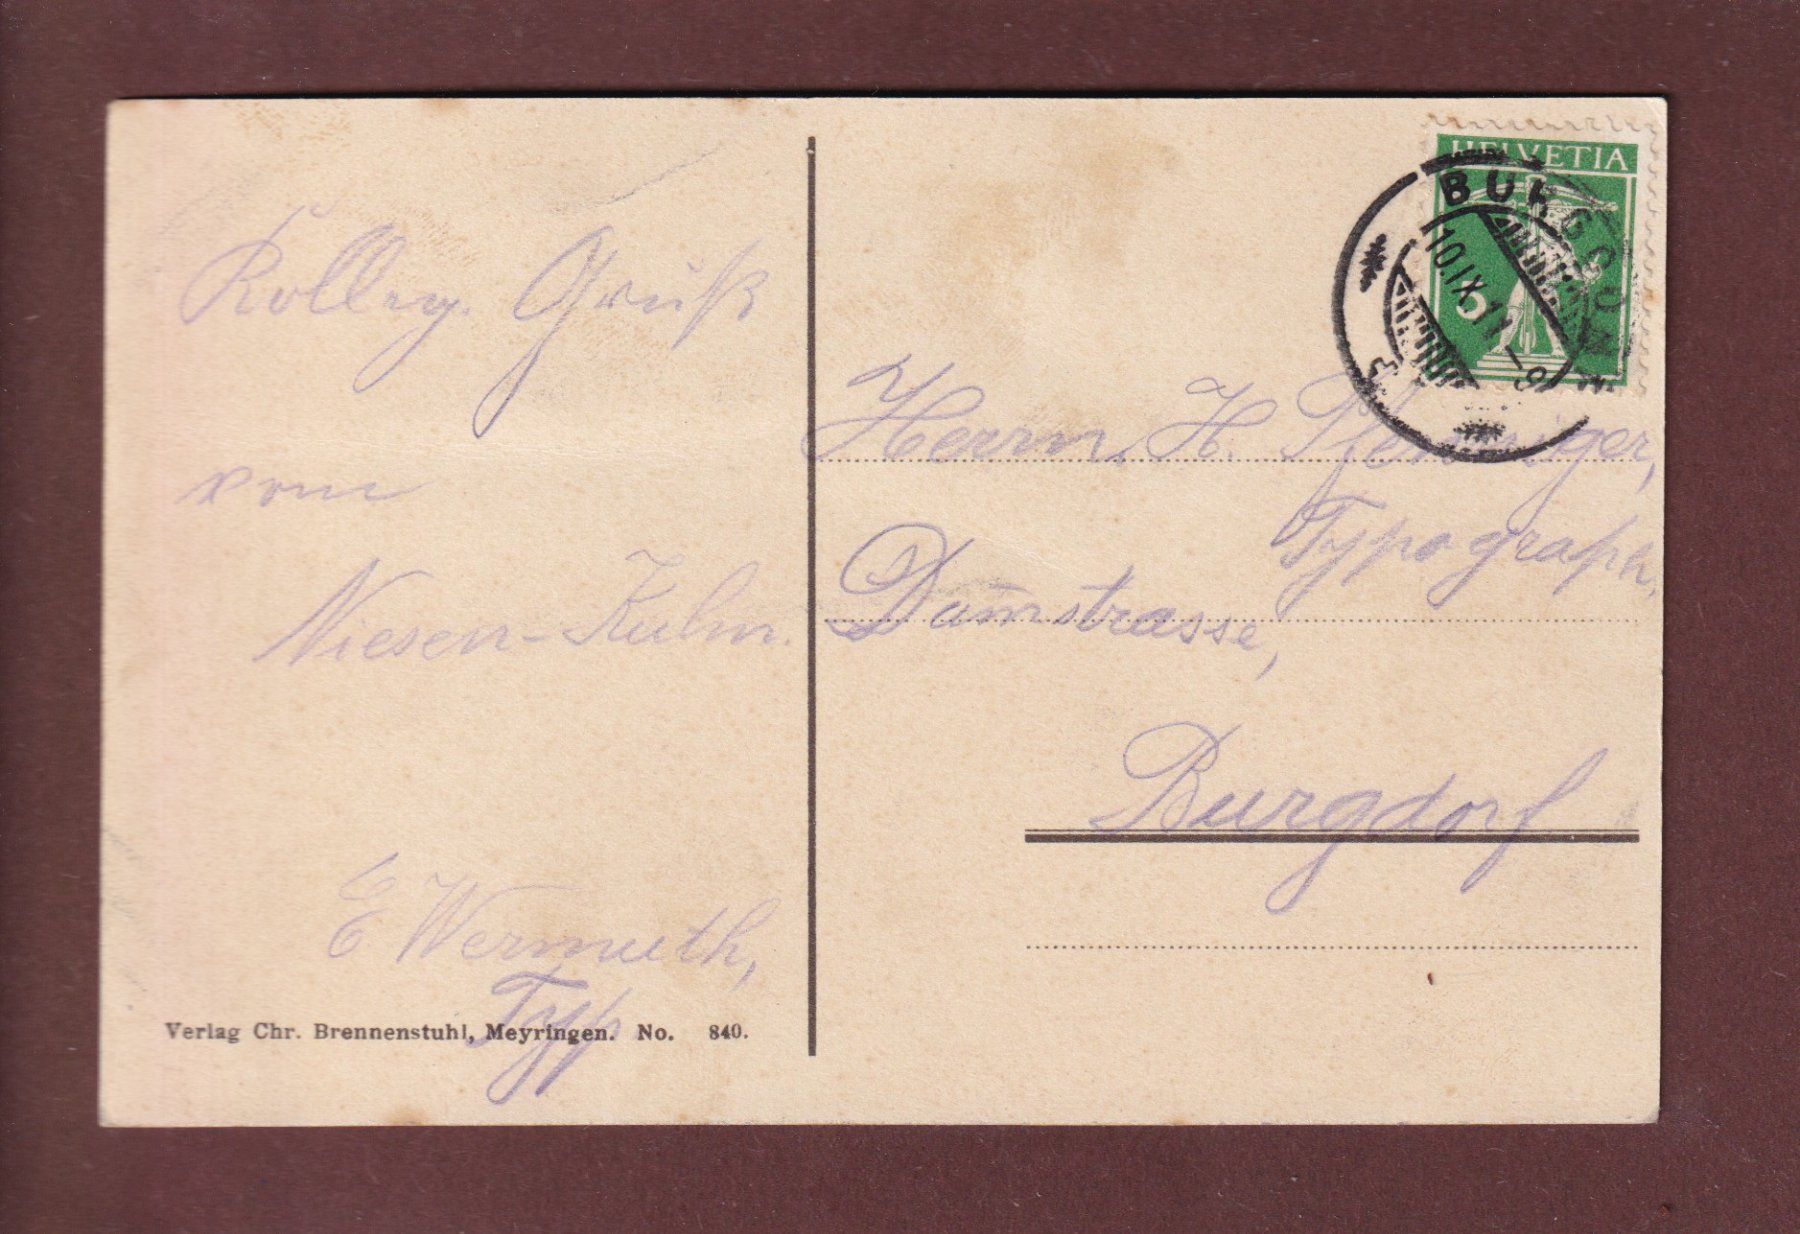 Kolleg. Gruß
vom
Niesen-Kulm.
E Wermuth,
Typ
Verlag Chr. Brennenstuhl, Meyringen. No. 840.
HELVETIA
5
BURGDORF
10.IX.11.-9
Herrn. H.
Typograph.
Dam̅strasse,
Burgdorf